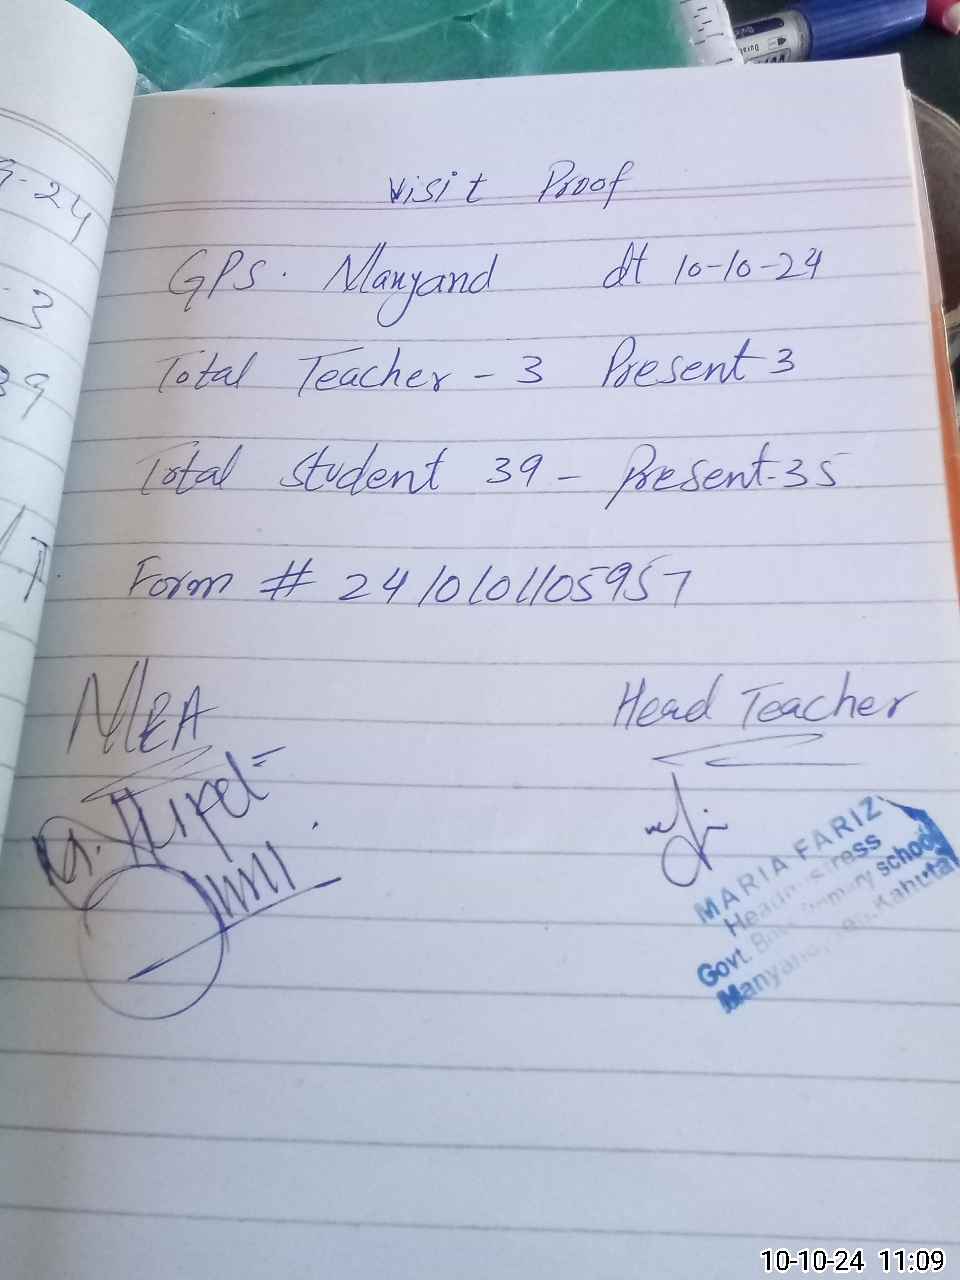 9-24
-3
39
Visit Proof
GPS. Manyand dt 10-10-24
Total Teacher - 3 Present 3
Total Student 39 - Present-35
Form # 2410101105957
MEA
Head Teacher
MARIA FARIZ
Headmistress
Govt. Boys Primary school
Manyand, Teh. Kahuta
10-10-24 11:09